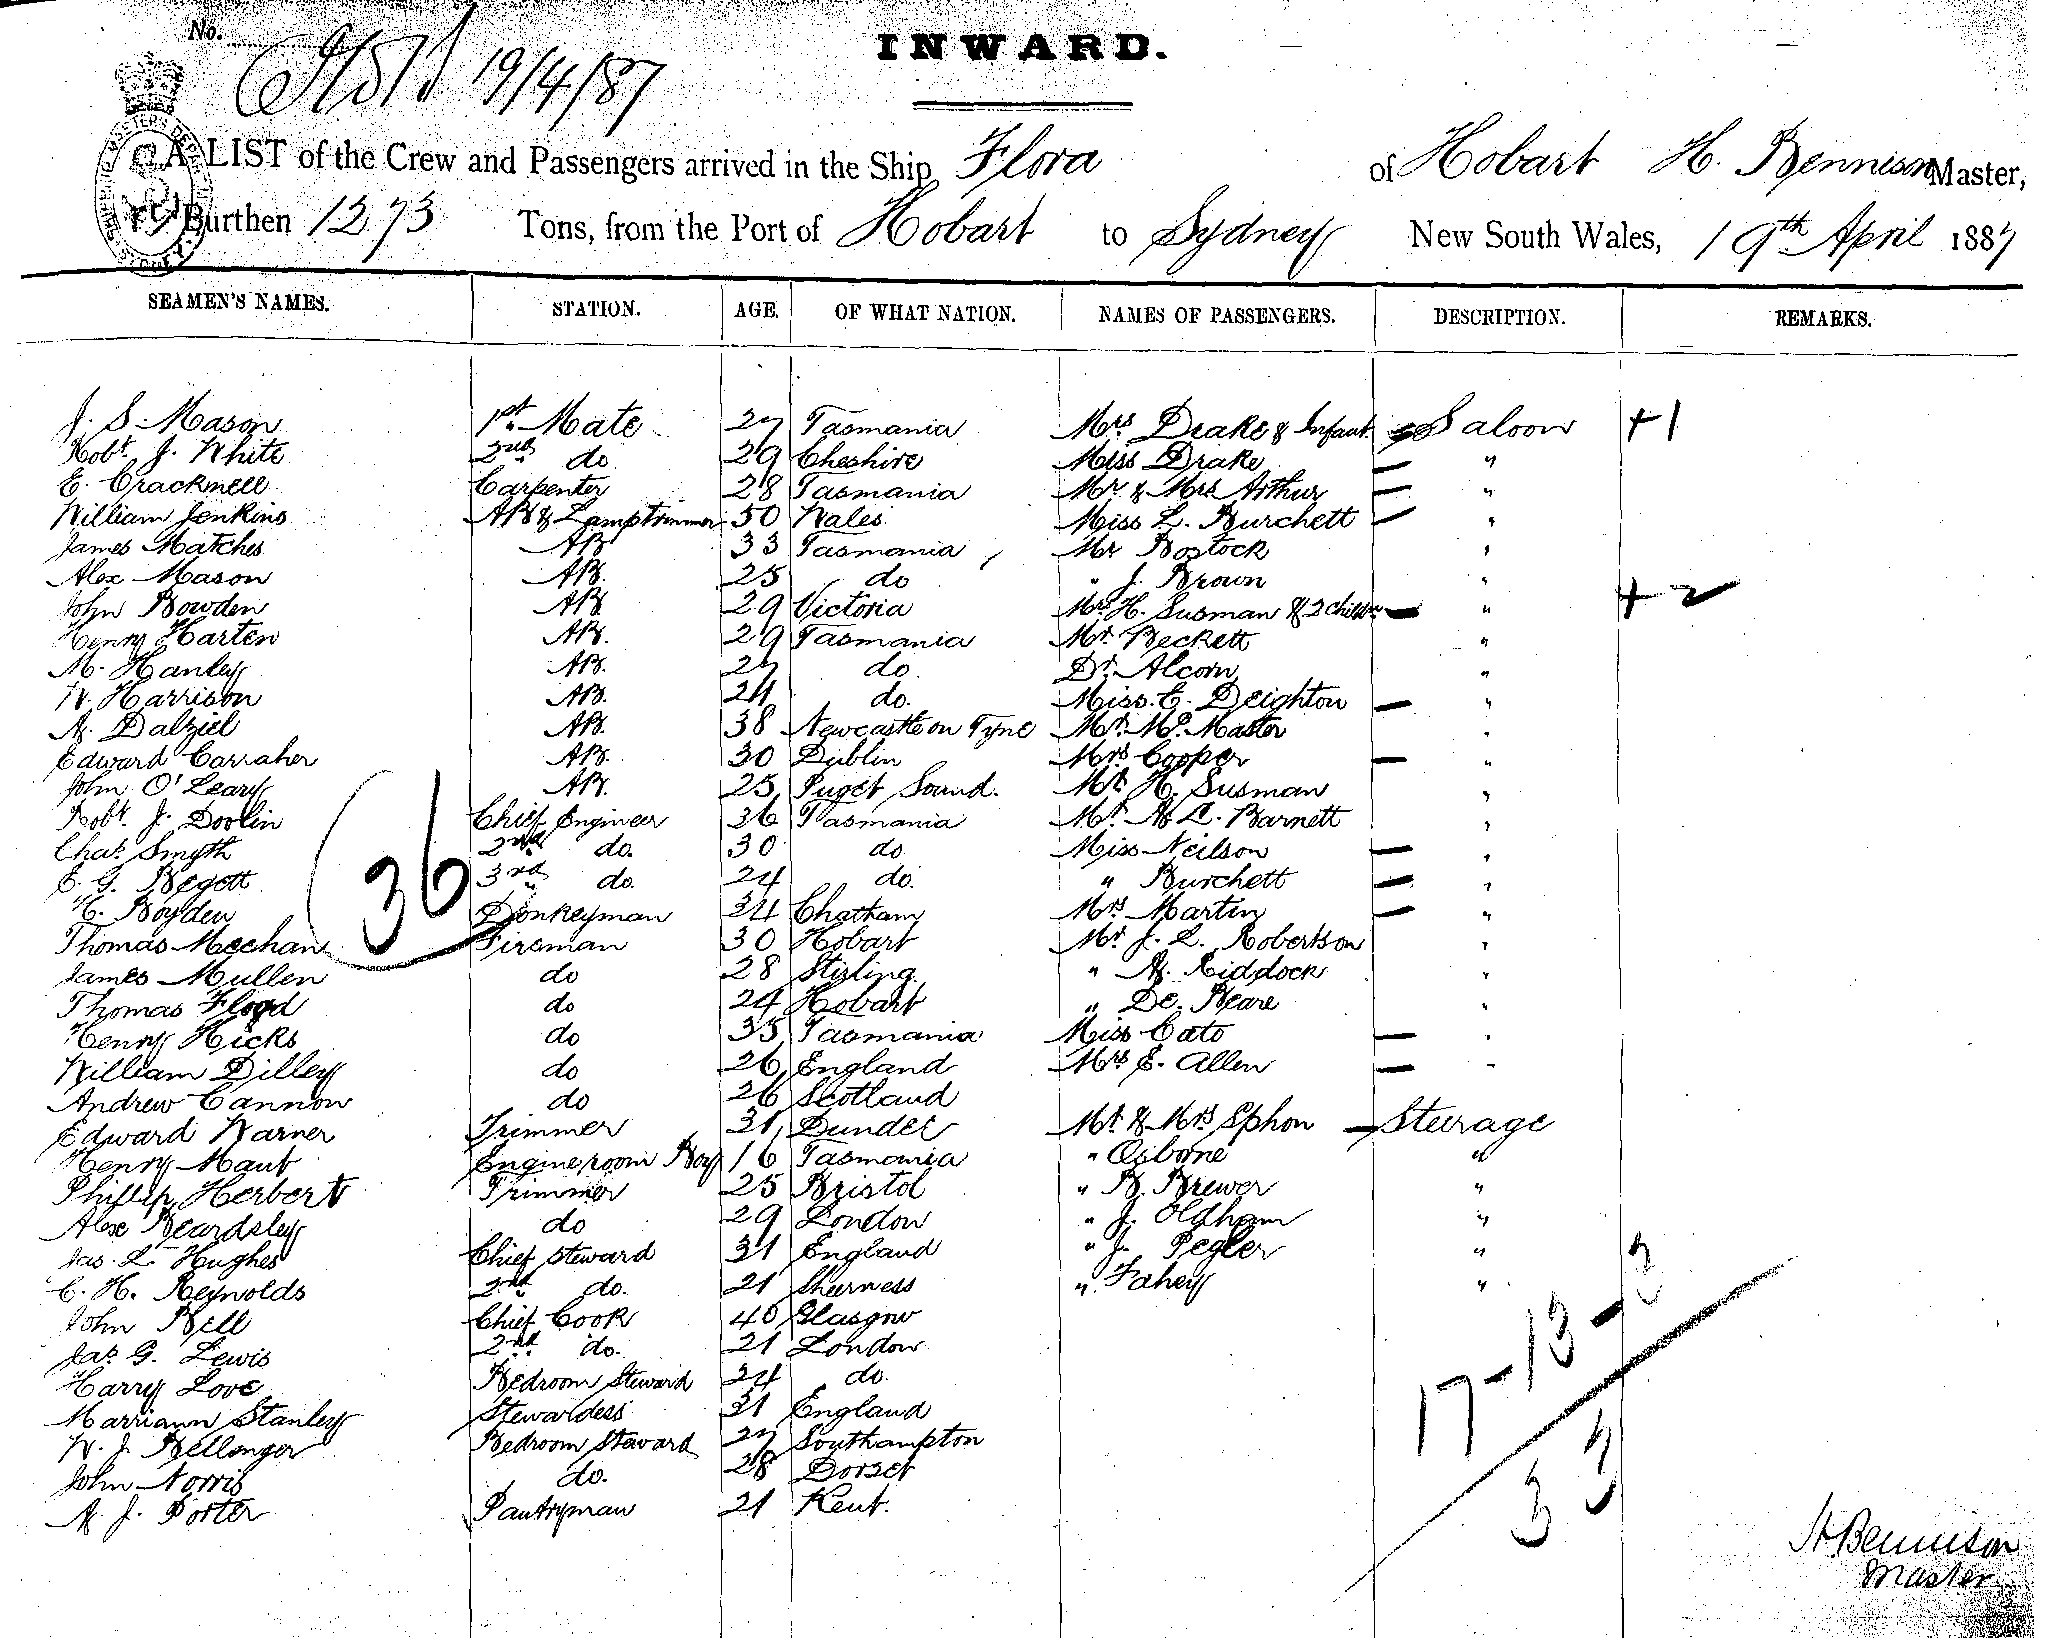 No.
19/4/87
INWARD.
A LIST of the Crew and Passengers arrived in the Ship Flora of Hobart H. Bennison Master,
Burthen 1273 Tons, from the Port of Hobart to Sydney New South Wales, 19th April 1887
SEAMEN'S NAMES. STATION. AGE. OF WHAT NATION. NAMES OF PASSENGERS. DESCRIPTION. REMARKS.
J. S. Mason 1st Mate 27 Tasmania Mrs Drake & Infant Saloon +1
Robt. J. White 2nd do 29 Cheshire Miss Drake "
E. Cracknell Carpenter 28 Tasmania Mr & Mrs Arthur "
William Jenkins AB & Lamptrimmer 50 Wales Miss L. Burchett "
James Matches AB 33 Tasmania Mr Bostock "
Alex Mason AB. 25 do " J. Brown "
John Bowden AB 29 Victoria Mrs H. Susman & 2 childrn " +2
Henry Harten AB. 29 Tasmania Mr. Beckett "
M. Hanley AB. 27 do. Dr. Alcorn "
W. Harrison AB. 24 do. Miss. C. Deighton "
A. Dalziel AB. 38 Newcastle on Tyne Mr. Mc.Master "
Edward Carraher AB. 30 Dublin Mrs Cooper "
John O'Leary AB. 25 Puget Sound. Mr. H. Susman "
Robt. J. Doolin Chief Engineer 36 Tasmania Mr. A. L. Barnett "
Chas. Smyth 2nd do. 30 do Miss Neilson "
E. G. Begott 3rd do. 24 do. " Burchett "
C. Boyden Donkeyman 34 Chatham Mrs Martin "
36
Thomas Meehan Fireman 30 Hobart Mr. J. L. Robertson "
James Mullen do 28 Stirling " A. Riddock "
Thomas Floyd do 24 Hobart " De. Beare "
Henry Hicks do 35 Tasmania Miss Cato "
William Dilley do 26 England Mrs E. Allen "
Andrew Cannon do 26 Scotland
Edward Warner Trimmer 31 Dundee Mr. & Mrs Sphon Steerage
Henry Maut Engine room Boy 16 Tasmania " Osborne "
Phillip Herbert Trimmer 25 Bristol " B. Brewer "
Alex Beardsley do 29 London " J. Oldham "
Jas. L. Hughes Chief Steward 31 England " J. Pegler "
C. H. Reynolds 2nd do. 21 Sheerness " Fahey "
John Bell Chief Cook 40 Glasgow
Jas. G. Lewis 2nd do. 21 London
Harry Love Bedroom Steward 24 do.
Marriann Stanley Stewardess 31 England
W. J. Bellenger Bedroom Steward 27 Southampton
John Norris do. 28 Dorset
A. J. Porter Pantryman 21 Kent.
17-13-3
33
H. Bennison
Master